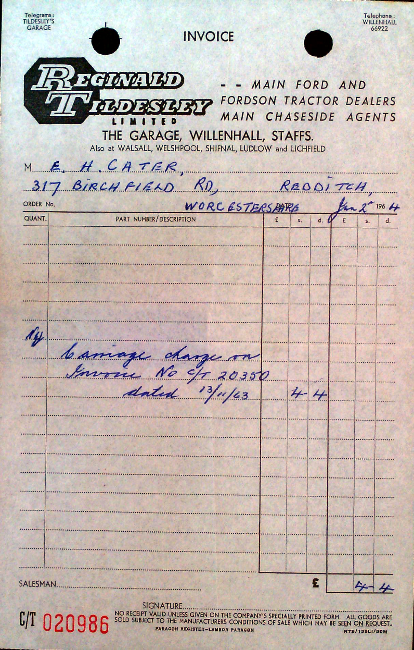 Telegrams:
TILDESLEY'S
GARAGE
Telephone:
WILLENHALL
66922
INVOICE
REGINALD
TILDESLEY
LIMITED
- - MAIN FORD AND
FORDSON TRACTOR DEALERS
MAIN CHASESIDE AGENTS
THE GARAGE, WILLENHALL, STAFFS.
Also at WALSALL, WELSHPOOL, SHIFNAL, LUDLOW and LICHFIELD
M E. H. CATER,
317 BIRCHFIELD RD, REDDITCH,
ORDER No. WORCESTERSHIRE Jan 2nd 1964
QUANT. PART NUMBER/DESCRIPTION £ s. d. £ s. d.
Carriage charge on
Invoice No C/T 20350
dated 13/11/63 4 4
SALESMAN £ 4 4
SIGNATURE
C/T 020986
NO RECEIPT VALID UNLESS GIVEN ON THE COMPANY'S SPECIALLY PRINTED FORM ALL GOODS ARE
SOLD SUBJECT TO THE MANUFACTURERS CONDITIONS OF SALE WHICH MAY BE SEEN ON REQUEST.
PARAGON REGISTER—LAMSON PARAGON